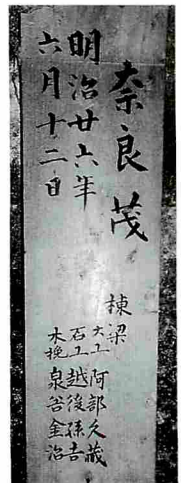 奈良茂
明治廿六年
六月十二日
棟梁
大工 阿部久蔵
石工 越後孫吉
木挽 泉谷金治